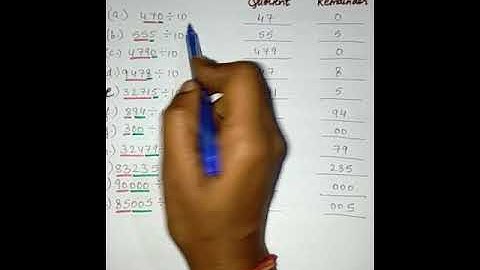 Quotient Remainder
(a.) 470÷10 47 0
(b.) 555÷10 55 5
(c.) 4790÷ 479 0
(d.) 9478÷10 8
32715÷10 5
894÷ 94
300÷ 00
32479 79
83235 235
90000÷ 000
85005÷ 005